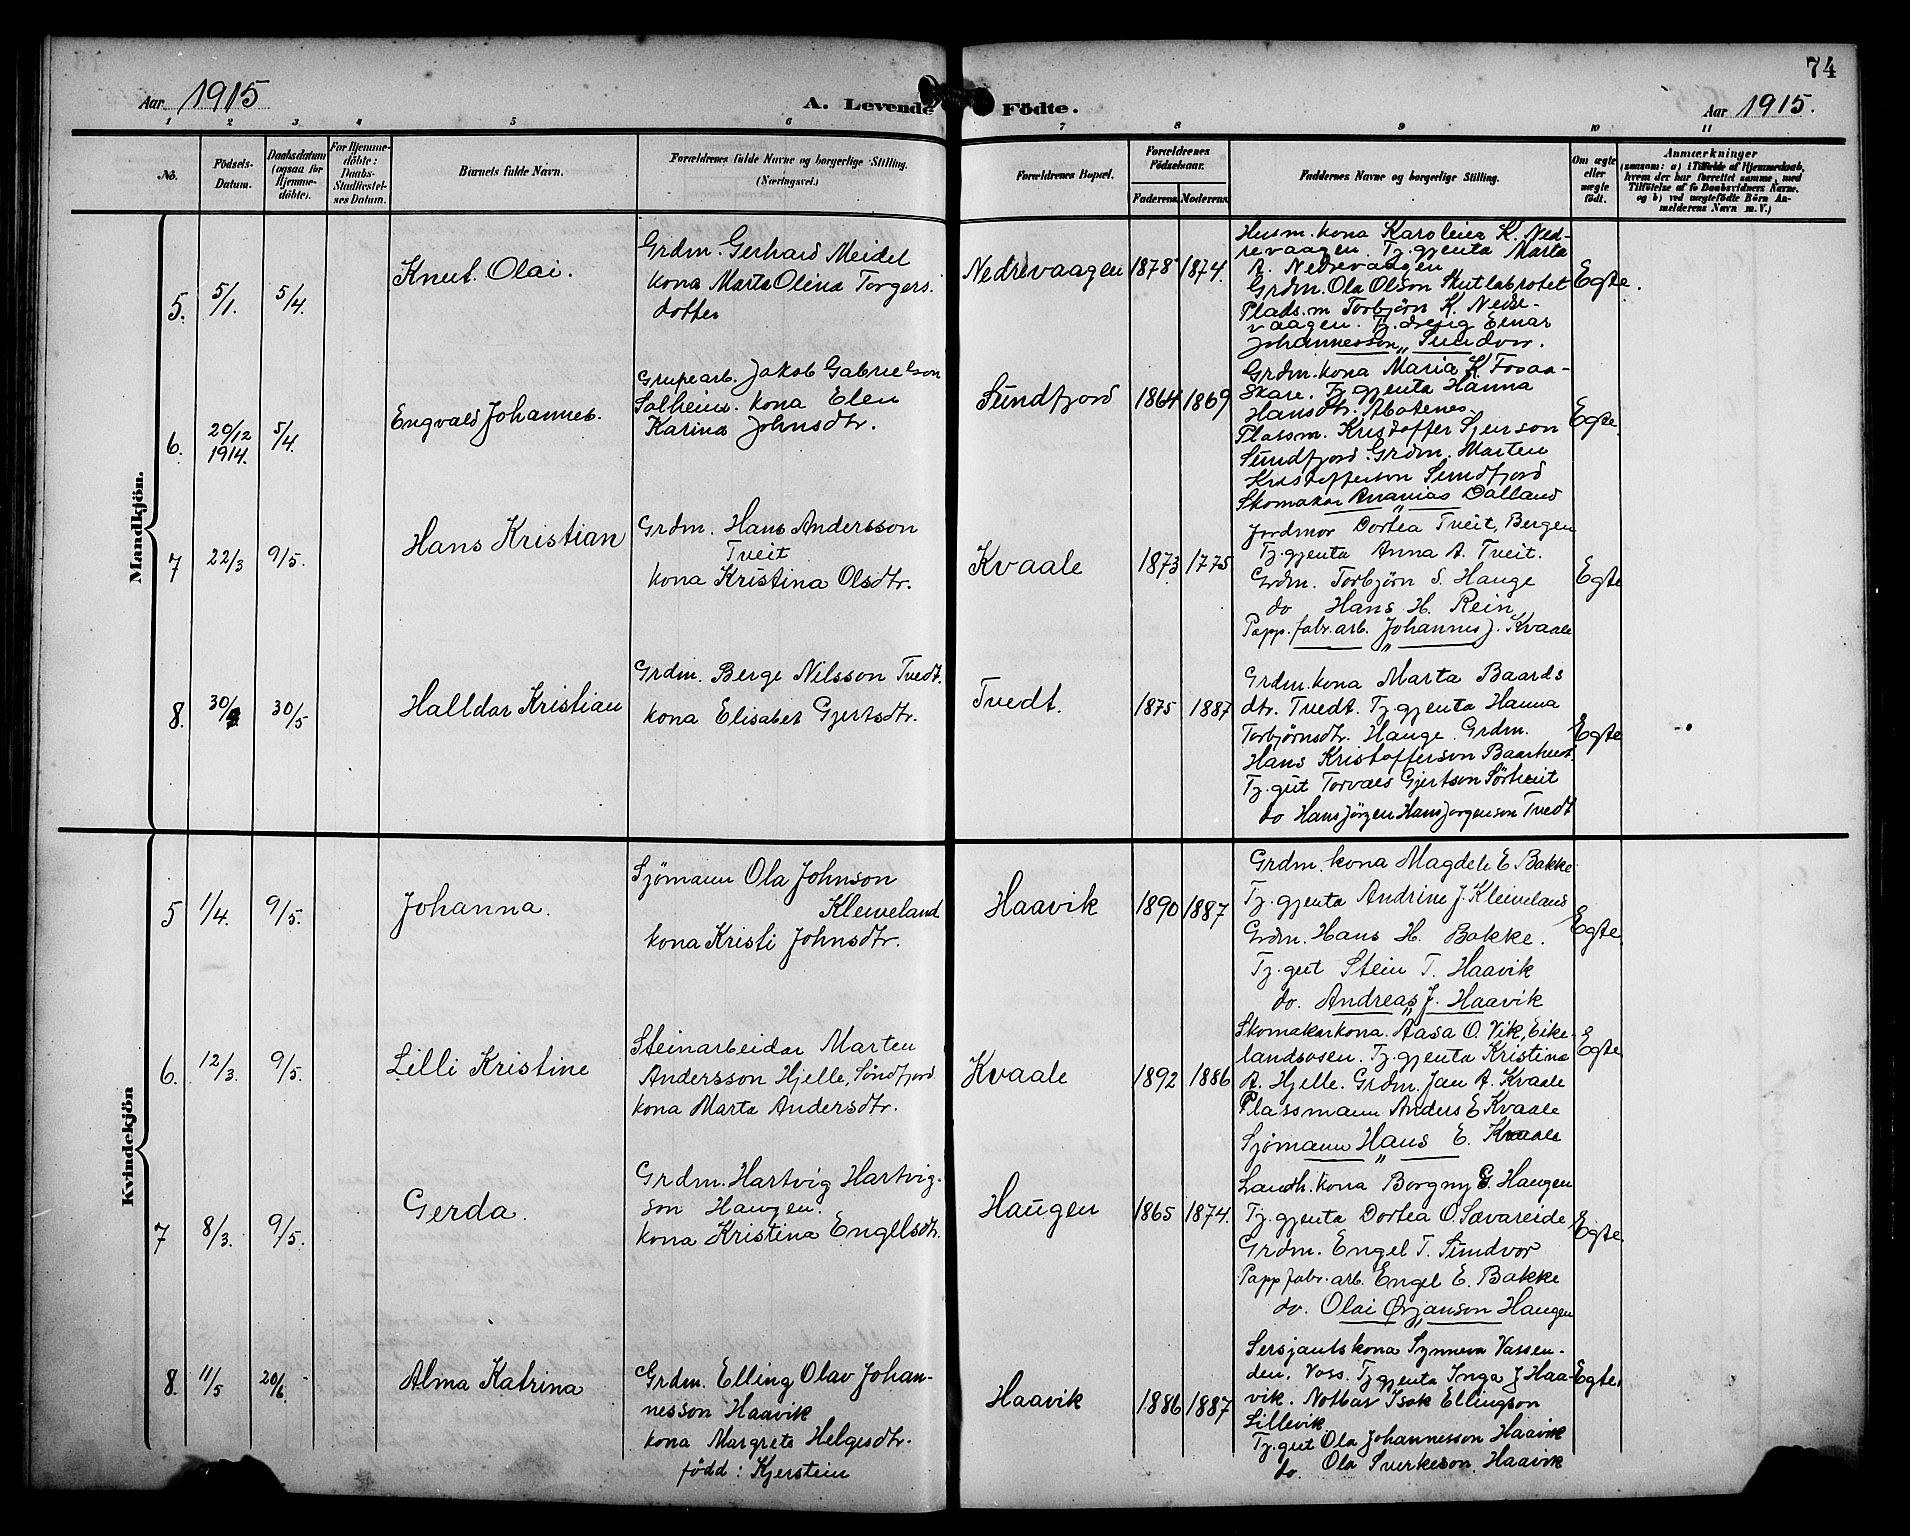 74
Aar 1915
A. Levende Födte.
Aar 1915.
1 2 3 4 5 6 7 8 9 10 11
No.
Födsels-
Datum.
Daabsdatum
(ogsaa for
Hjemme-
döbte).
For Hjemme-
döbte:
Daabs-
Stadfæstel-
ses Datum.
Barnets fulde Navn.
Forældrenes fulde Navne og borgerlige Stilling.
(Næringsvei.)
Forældrenes Bopæl.
Forældrenes
Födselsaar.
Faderens. Moderens.
Faddernes Navne og borgerlige Stilling.
Om ægte
eller
uægte
födt.
Anmærkninger
(saasom: a) i Tilfælde af Hjemmedaab,
hvem der har forrettet samme, med
Tilföielse af to Daabsvidners Navne.
og b) ved uægtefödte Börn An-
melderens Navn m. V.)
Mandkjön.
5. 5/1. 5/4.
Knut Olai.
Grdm. Gerhard Meidel
kona Marta Olina Torgers
dotter
Nedrevaagen 1878 1874.
Husm. kona Karoleia K. Ned-
revaagen. Tj. gjenta Marta
A. Nedrevaagen
Grdm. Ola Olson Skutlabrotet
Plads.m Torbjörn K. Nedre-
vaagen. Tj. dreng Einar
Johannesson Sundvor.
Egte.
6. 20/12 1914. 5/4
Engvald Johannes.
Grupearb. Jakob Gabrielson
Solheim. kona Elen
Karina Johnsdtr.
Sundfjord 1864 1869
Grdm. kona Maria K. Fosaa-
skare. Tj. gjenta Hanna
Hansdtr.
Plassm. Kristoffer
Sundfjord. Grdm. Marten
Kristofferson Sundfjord
Skomakar Ananias Dalland
Egte.
7 22/3 9/5.
Hans Kristian
Grdm. Hans Andersson
Tveit
kona Kristina Olsdtr.
Kvaale 1873 1775
Jordmor Dortea Tveit, Bergen
Tj. gjenta Anna A. Tveit.
Grdm. Torbjørn S. Hauge
do Hans H. Rein
Papp. fabr. arb. Johannes J. Kvaale
Egte
8. 30/4 30/5
Halldor Kristian
Grdm. Berge Nilsson Tvedt.
kona Elisabet Gjertsdtr.
Tvedt. 1875 1887
Grdm. kona Marta Baards
dtr. Tvedt. Tj. gjenta Hanna
Torbjørnsdtr. Hauge. Grdm.
Hans Kristofferson
Tj. gut Torvald Gjertson
do Hans Jörgen Hans Jorgenson Tvedt
Egte
Kvindekjön
5 1/4. 9/5.
Johanna.
Sjømann Ola Johnson
Kleiveland
kona Kristi Johnsdtr.
Haavik 1890 1887
Grdm. kona Magdele E. Bakke
Tj. gjenta Andrine J. Kleiveland
Grdm. Hans H. Bakke.
Tj. gut Stein T. Haavik
do. Andreas J. Haavik
Egte
6. 12/3. 9/5.
Lilli Kristine
Steinarbeidar Marten
Andersson Hjelle, Søndfjord
kona Marta Andersdtr.
Kvaale 1892 1886
Skomakarkona. Aasa O. Vik, Eike-
landsosen. Tj. gjenta Kristina
A. Hjelle. Grdm. Jan A. Kvaale
Plassmann Anders E Kvaale
Sjømann Hans E. Kvaale
Egte
7 8/3. 9/5.
Gerda.
Grdm. Hartvig Hartvig-
son Haugen.
kona Kristina Engelsdtr.
Haugen 1865 1874.
Landh. kona Borgny G. Haugen
Tj. gjenta Dortea O. Sævareide
Grdm. Engel T. Sundvor
Papp fabr. arb. Engel E. Bakke
do. Olai Ørjanson Haugen
Egte
8. 11/5 20/6
Alma Katrina
Grdm. Elling Olav Johan-
nesson Haavik
kona Margreta Helgesdtr.
född: Kjerstein
Haavik 1886 1887
Sersjantskona Synneva Vassen-
den, Voss. Tj gjenta Inga J Haa-
vik. Notbas Isak Ellingson
Lillevik.
Tj. gut Ola Johannesson Haavik
do Ola Sverkeson Haavik
Egte.